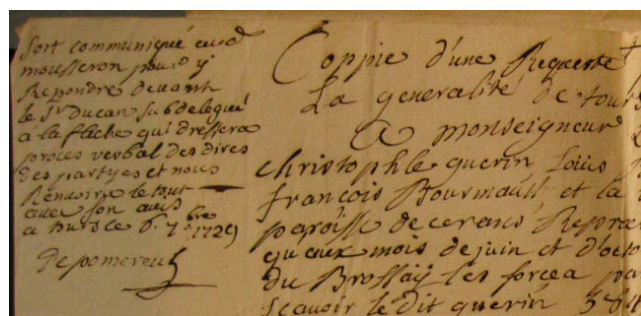 Soit communiqué aud
mousseron pour y
Repondre devant
le Sr Ducan subdelegué
a la fleche qui dressera
proces verbal des dires
des partyes et nous
Renvoira le tout
avec son avis
a tours ce 6. 7bre 1729
De pomereu
Coppie d'une Requeste
La generalité de tour
A monseigneur
christophle guerin Louis
françois Bourmault et la
paroisse de cerans Repré
qu'aux mois de juin et d'octo
du Brossay les forcea pa
scavoir le dit guerin 38